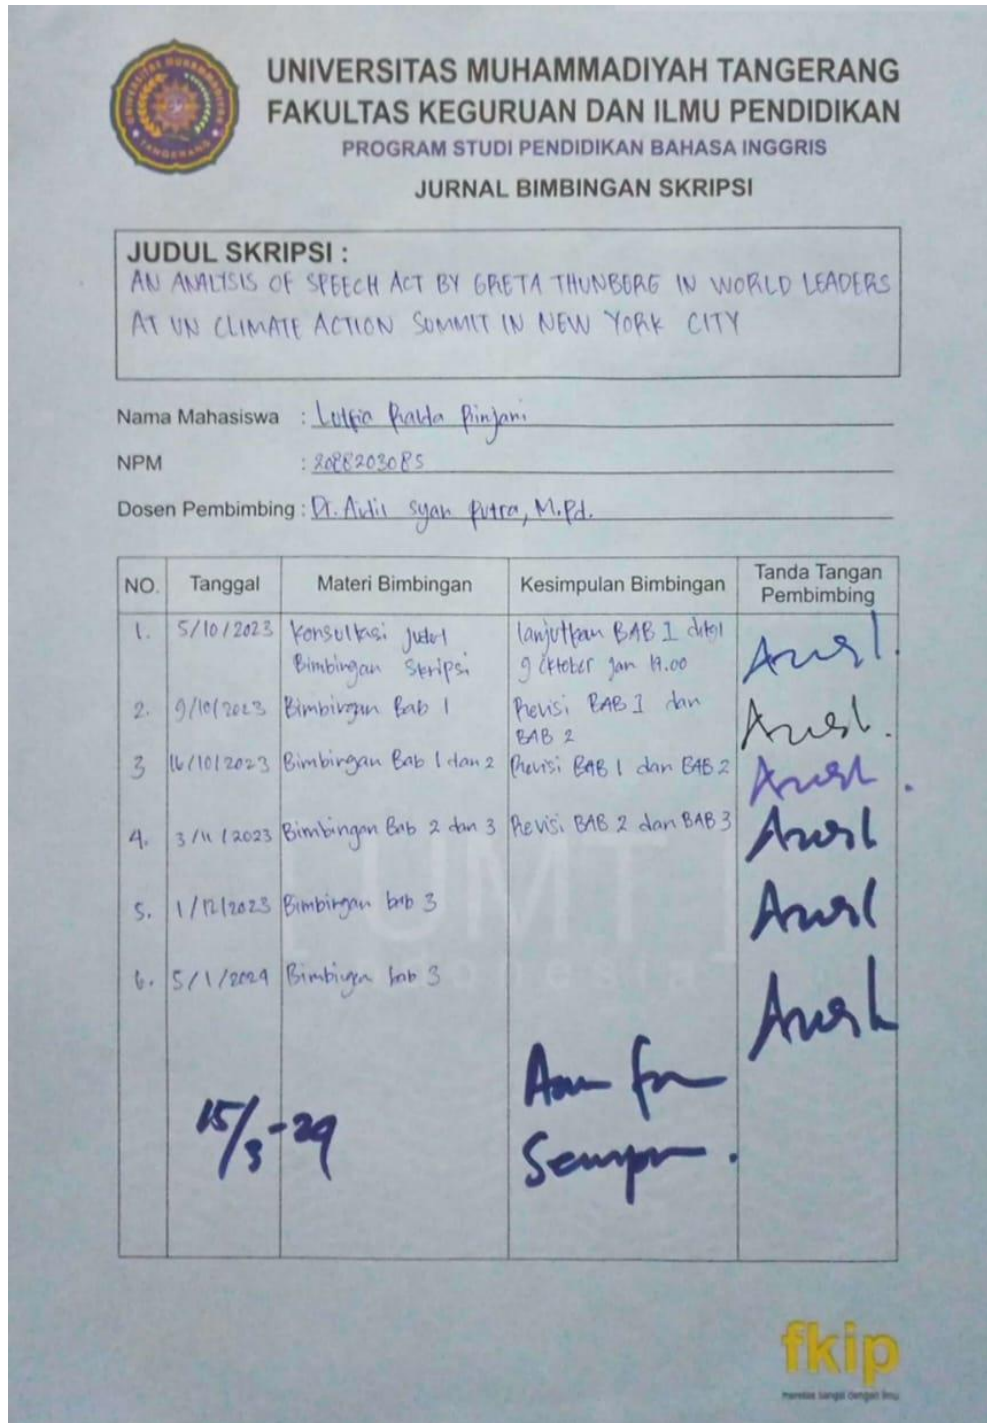 UNIVERSITAS MUHAMMADIYAH TANGERANG
FAKULTAS KEGURUAN DAN ILMU PENDIDIKAN
PROGRAM STUDI PENDIDIKAN BAHASA INGGRIS
JURNAL BIMBINGAN SKRIPSI
JUDUL SKRIPSI :
AN ANALYSIS OF SPEECH ACT BY GRETA THUNBERG IN WORLD LEADERS
AT UN CLIMATE ACTION SUMMIT IN NEW YORK CITY
Nama Mahasiswa : Lutfia Rinjani
NPM : 2088203085
Dosen Pembimbing : Dr. Aidil Syah Putra, M.Pd.
NO. Tanggal Materi Bimbingan Kesimpulan Bimbingan Tanda Tangan Pembimbing
1. 5/10/2023 Konsultasi Judul Bimbingan Skripsi lanjutkan BAB 1 9 Oktober Jam 19.00
2. 9/10/2023 Bimbingan Bab 1 Revisi BAB 1 dan BAB 2
3 16/10/2023 Bimbingan Bab 1 dan 2 Revisi BAB 1 dan BAB 2
4. 3/11/2023 Bimbingan Bab 2 dan 3 Revisi BAB 2 dan BAB 3
5. 1/12/2023 Bimbingan bab 3
6. 5/1/2024 Bimbingan bab 3
15/3-24
UMT
fkip